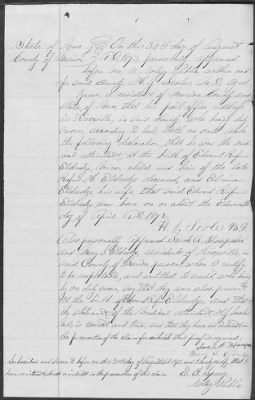 State of Iowa } On this 30th day of August
County of Marion } A.D. 1893, personally appeared
before me, a Notary Public within and
for said County H. J. Scoles M.D. aged
years, a resident of Marion County and
State of Iowa that his post office address
is Knoxville, in said County who being duly
sworn, according to law, doth on oath make
the following declaration, that he was the
attendant, at the birth of Edward Rufus
Eldridge, minor, child and heir of the late
Rufus H. Eldridge deceased, and Elmina
Eldridge, his wife, that said Edward Rufus
Eldridge was born on or about the
day of April A.D. 1892.
H. J. Scoles M.D.
Also personally appeared Sarah E.
and Mary E. Eldridge residents of Knoxville, in
said County of Marion persons who I certify
to be respectable, and entitled to credit who being
by me duly sworn, say that they was also present
at the birth of Edward Rufus Eldridge, and that
the statement of the
is correct and true, and that they have no interest in
the prosecution of the claim
Sarah E.
Mary E. Eldridge
Subscribed and Sworn to before me this 30th day of August A.D. 1893 and I hereby certify that I
have no interest in the prosecution of this claim.
Notary Public